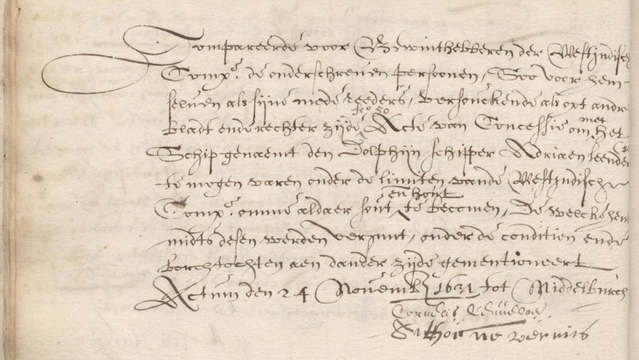 Compareerde voor Bewinthebberen der Westindisch
Compe. de onderschreven persoonen, Soo voor hem
selven als sijne mede reeders, versouckende als opt andre
bladt ende rechter zijde Acte van Concessie om met het
Schip genaemt den Dolphijn schipper Adriaen leenders
te mogen varen onder de limiten vande Westindische
en hout
Compe. omme aldaer sout te becomen, De welcke hem
midts desen werden versunt, onder de conditien ende
borchtochten aen dander zijde gementioneert
Actum den 24 Novemb 1631 tot Middelburch
Cornelis